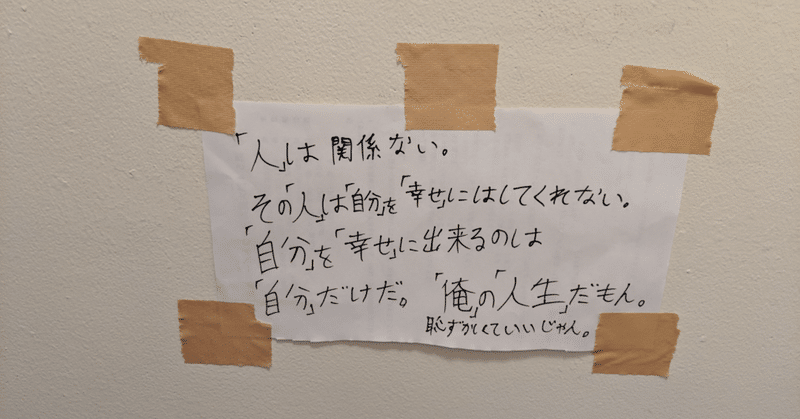 「人」は関係ない。
その「人」は「自分」を「幸せ」にはしてくれない。
「自分」を「幸せ」に出来るのは
「自分」だけだ。「俺」の「人生」だもん。
恥ずかしくていいじゃん。